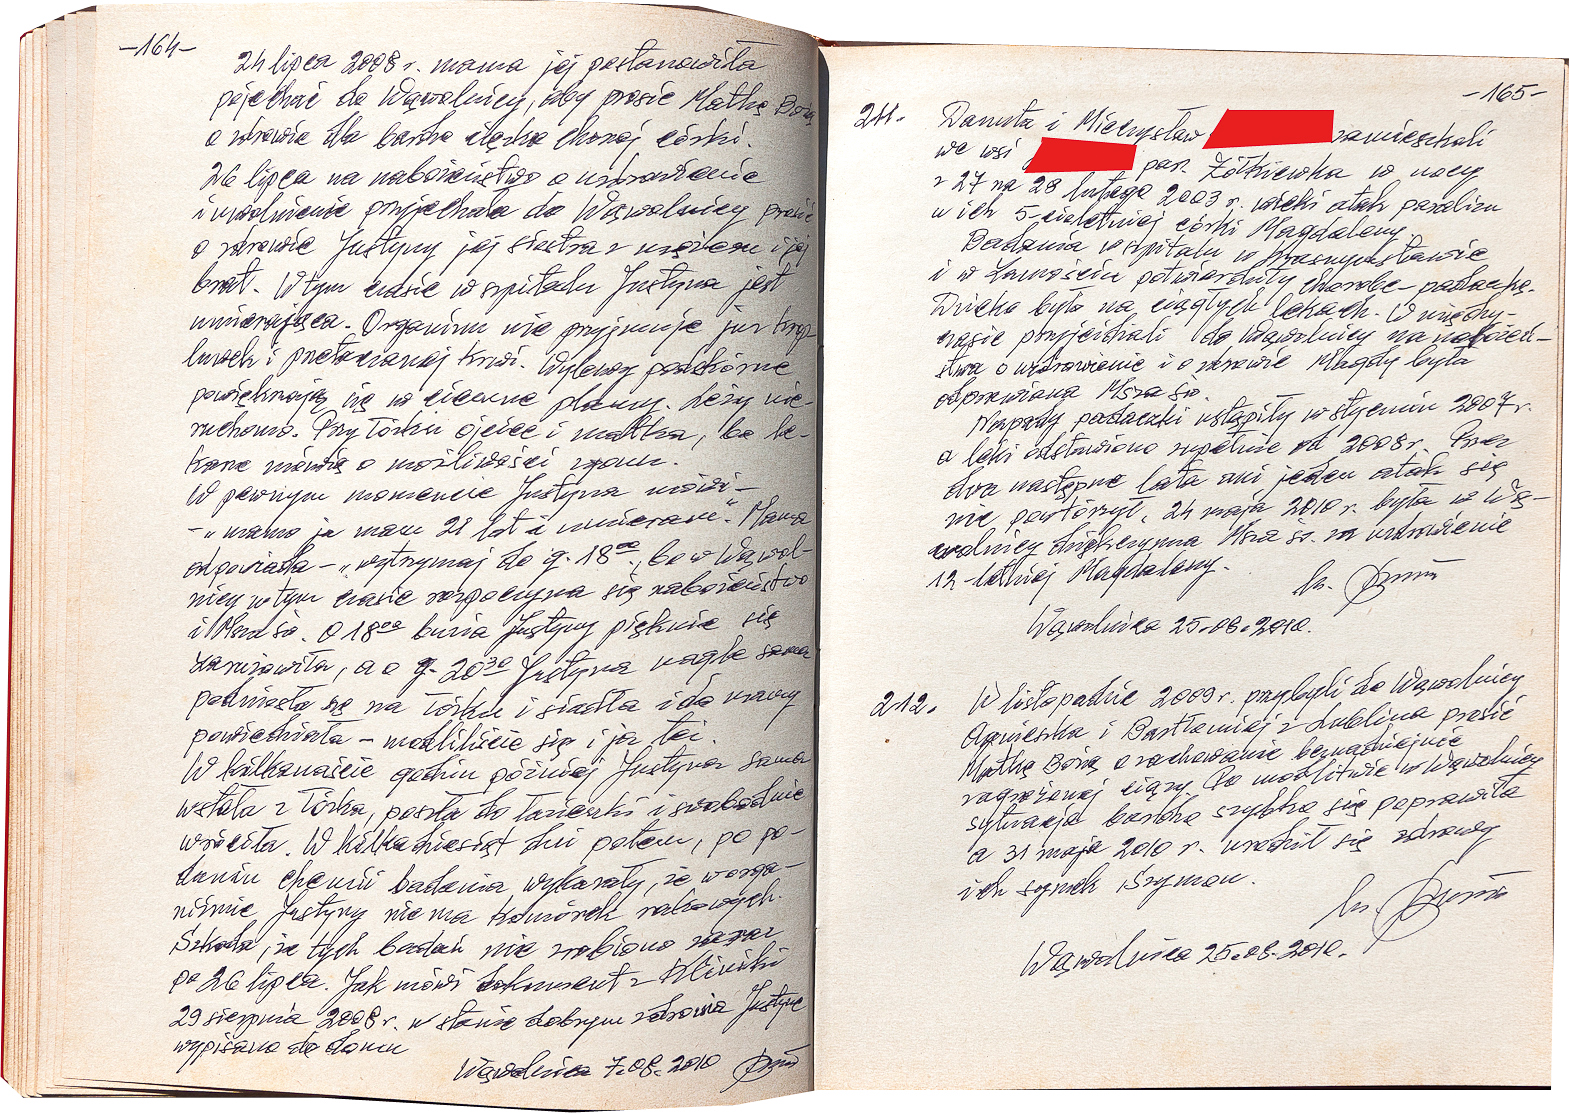 -164-
24 lipca 2008 r. mama jej postanowiła
pojechać do Wąwolnicy, aby prosić Matkę Bożą
o zdrowie dla bardzo ciężko chorej córki.
26 lipca na nabożeństwo o uzdrowienie
i uwolnienie przyjechała do Wąwolnicy prosić
o zdrowie Justyny jej siostra z mężem i jej
brat. W tym czasie w szpitalu Justyna jest
umierająca. Organizm nie przyjmuje już krop-
lówek i przetaczanej krwi. Wylewy podskórne
powiększają się w ciemne plamy. Leży nie-
ruchomo. Przy łóżku ojciec i matka, bo le-
karze mówią o możliwości zgonu.
W pewnym momencie Justyna mówi -
- „mamo ja mam 21 lat i umieram". Mama
odpowiada - „wytrzymaj do g. 18⁰⁰, bo w Wąwol-
nicy w tym czasie rozpoczyna się nabożeństwo
i Msza św. O 18⁰⁰ buzia Justyny pięknie się
zaróżowiła, a o g. 20³⁰ Justyna nagle sama
podniosła się na łóżku i siadła i do mamy
powiedziała - módliliście się i ja też.
W kilkanaście godzin później Justyna sama
wstała z łóżka, poszła do łazienki i swobodnie
wróciła. W kilkadziesiąt dni potem, po po-
daniu chemii badania wykazały, że w orga-
nizmie Justyny nie ma komórek rakowych.
Szkoda, że tych badań nie zrobiono zaraz
po 26 lipca. Jak mówi dokument z Kliniki
29 sierpnia 2008 r. w stanie dobrym zdrowia Justynę
wypisano do domu
Wąwolnica 7.08.2010
-165-
211. Danuta i Mieczysław zamieszkali
we wsi par. Żółkiewka w nocy
z 27 na 28 lutego 2003 r. wielki atak paraliżu
u ich 5-cioletniej córki Magdaleny.
Badania w szpitalu w Krasnymstawie
i w Zamościu potwierdziły chorobę - padaczkę.
Dziecko było na ciągłych lekach. W między-
czasie przyjeżdżali do Wąwolnicy na nabożeń-
stwa o uzdrowienie i o zdrowie Magdy była
odprawiana Msza św.
Napady padaczki ustąpiły w styczniu 2007 r.
a leki odstawiono zupełnie od 2008 r. Przez
dwa następne lata ani jeden atak się
nie powtórzył. 24 maja 2010 r. była w Wą-
wolnicy dziękczynna Msza św. za uzdrowienie
12-letniej Magdaleny.
ks.
Wąwolnica 25.08.2010.
212. W listopadzie 2009 r. przybyli do Wąwolnicy
Agnieszka i Bartłomiej z Lublina prosić
Matkę Bożą o zachowanie beznadziejnie
zagrożonej ciąży. Po modlitwie w Wąwolnicy
sytuacja bardzo szybko się poprawiła
a 31 maja 2010 r. urodził się zdrowy
ich synek Szymon.
ks.
Wąwolnica 25.08.2010.